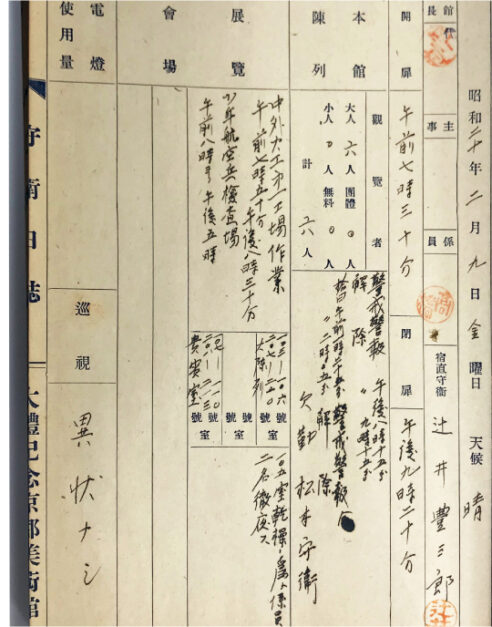 昭和二十年二月九日金曜日 天候 晴
館長代
主事
係員
宿直守衛 辻井豊三郎
開扉 午前七時三十分
閉扉 午後九時二十分
本館陳列
觀覽者
大人 六人 團體 〇人
小人 〇人 無料 〇人
計 六人
警戒警報 午後八時十五分
解除 〃 九時十五分
警戒警報
解除
欠勤 松本守衛
展覽會場
中外大工第一工場作業
午前七時五十分 午後八時三十分
少年航空兵檢查場
午前八時ヨリ午後五時
大陳列
貴賓室
號室
號室
號室
一〇五室乾燥ノ爲メ係員
二名徹夜ス
電燈使用量
巡視 異狀ナシ
守衛日誌
大禮記念京都美術館